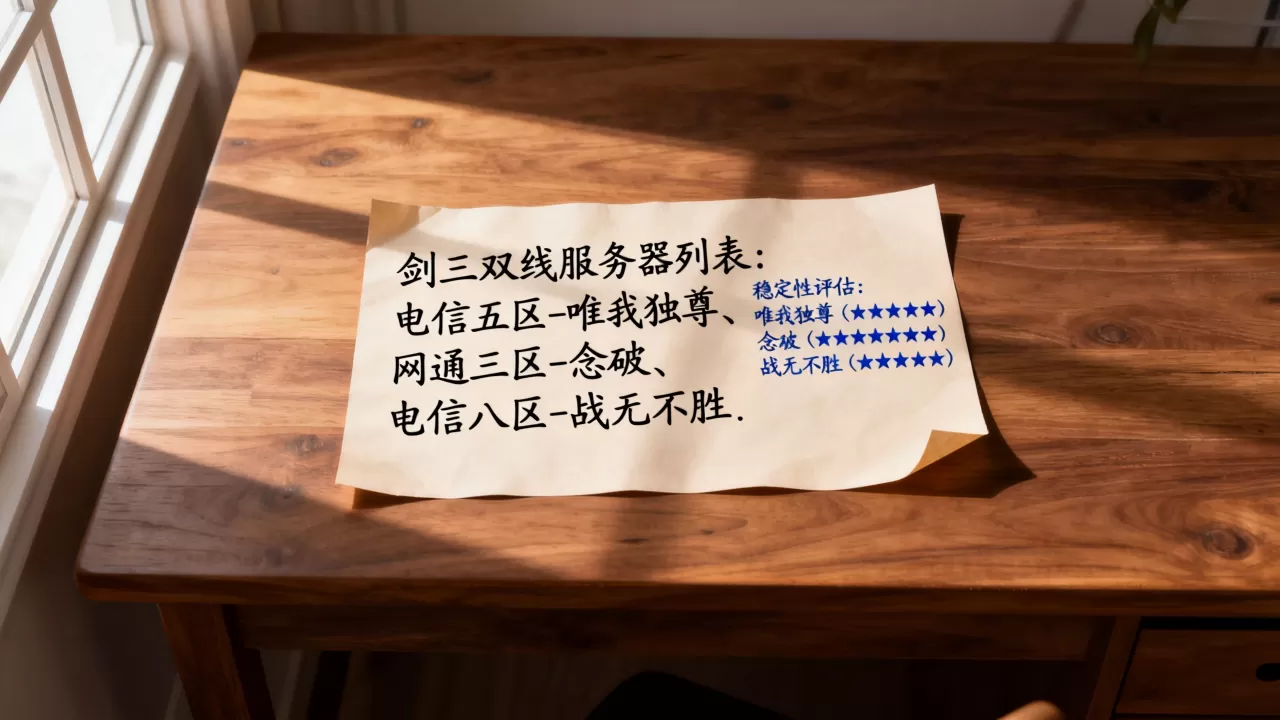 剑三双线服务器列表：
电信五区-唯我独尊、
网通三区-念破、
电信八区-战无不胜.
稳定性评估：
唯我独尊（★★★★★）
念破（★★★★★★★）
战无不胜（★★★★★）